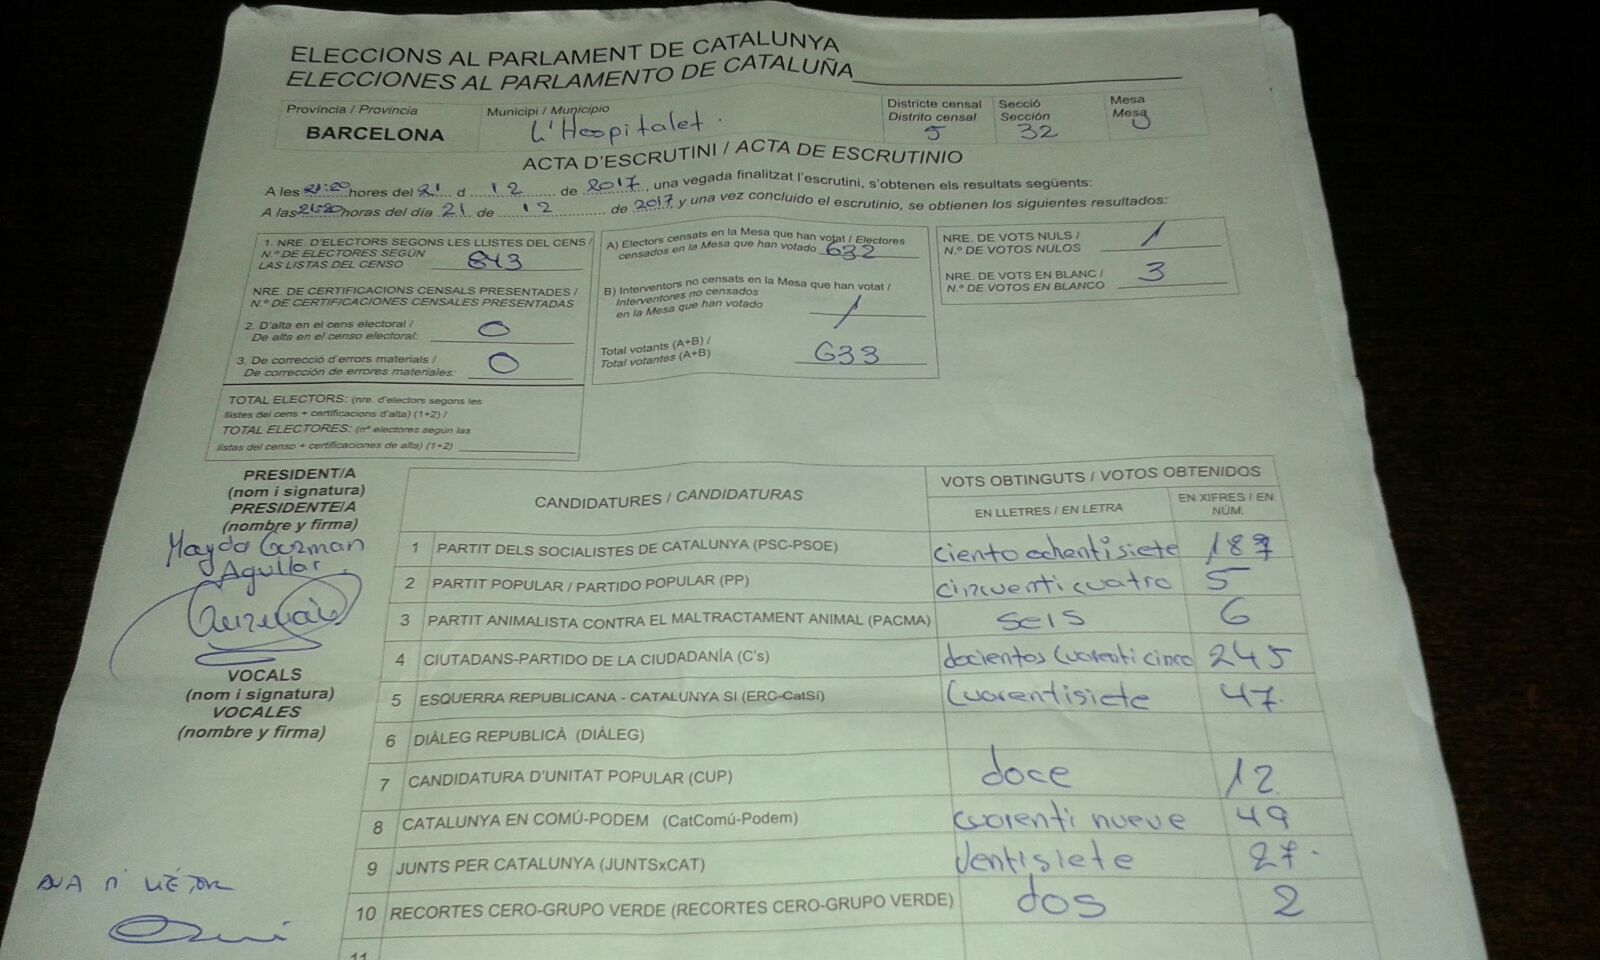 ELECCIONS AL PARLAMENT DE CATALUNYA
ELECCIONES AL PARLAMENTO DE CATALUÑA
Província / Provincia
BARCELONA
Municipi / Municipio
L'Hospitalet.
Districte censal
Distrito censal
5
Secció
Sección
32
Mesa
Mesa
U
ACTA D'ESCRUTINI / ACTA DE ESCRUTINIO
A les 21:20 hores del 21 d 12 de 2017, una vegada finalitzat l'escrutini, s'obtenen els resultats següents:
A las 21:20 horas del día 21 de 12 de 2017 y una vez concluido el escrutinio, se obtienen los siguientes resultados:
1. NRE. D'ELECTORS SEGONS LES LLISTES DEL CENS /
N.º DE ELECTORES SEGÚN
LAS LISTAS DEL CENSO 843
NRE. DE CERTIFICACIONS CENSALS PRESENTADES /
N.º DE CERTIFICACIONES CENSALES PRESENTADAS
2. D'alta en el cens electoral /
De alta en el censo electoral: 0
3. De correcció d'errors materials /
De corrección de errores materiales: 0
TOTAL ELECTORS: (nre. d'electors segons les
llistes del cens + certificacions d'alta) (1+2) /
TOTAL ELECTORES: (nº electores según las
listas del censo + certificaciones de alta) (1+2)
A) Electors censats en la Mesa que han votat / Electores
censados en la Mesa que han votado 632
B) Interventors no censats en la Mesa que han votat /
Interventores no censados
en la Mesa que han votado 1
Total votants (A+B) /
Total votantes (A+B) 633
NRE. DE VOTS NULS /
N.º DE VOTOS NULOS 1
NRE. DE VOTS EN BLANC /
N.º DE VOTOS EN BLANCO 3
PRESIDENT/A
(nom i signatura)
PRESIDENTE/A
(nombre y firma)
Magda Guzman
Aguilar
VOCALS
(nom i signatura)
VOCALES
(nombre y firma)
CANDIDATURES / CANDIDATURAS
VOTS OBTINGUTS / VOTOS OBTENIDOS
EN LLETRES / EN LETRA
EN XIFRES / EN
NÚM.
1 PARTIT DELS SOCIALISTES DE CATALUNYA (PSC-PSOE) ciento ochentisiete 187
2 PARTIT POPULAR / PARTIDO POPULAR (PP) cincuenti cuatro 5
3 PARTIT ANIMALISTA CONTRA EL MALTRACTAMENT ANIMAL (PACMA) seis 6
4 CIUTADANS-PARTIDO DE LA CIUDADANÍA (C's) docientos cuarenti cinco 245
5 ESQUERRA REPUBLICANA - CATALUNYA SI (ERC-CatSí) Cuarentisiete 47.
6 DIÀLEG REPUBLICÀ (DIÀLEG)
7 CANDIDATURA D'UNITAT POPULAR (CUP) doce 12.
8 CATALUNYA EN COMÚ-PODEM (CatComú-Podem) cuarenti nueve 49
9 JUNTS PER CATALUNYA (JUNTSxCAT) Ventisiete 27.
10 RECORTES CERO-GRUPO VERDE (RECORTES CERO-GRUPO VERDE) dos 2
11